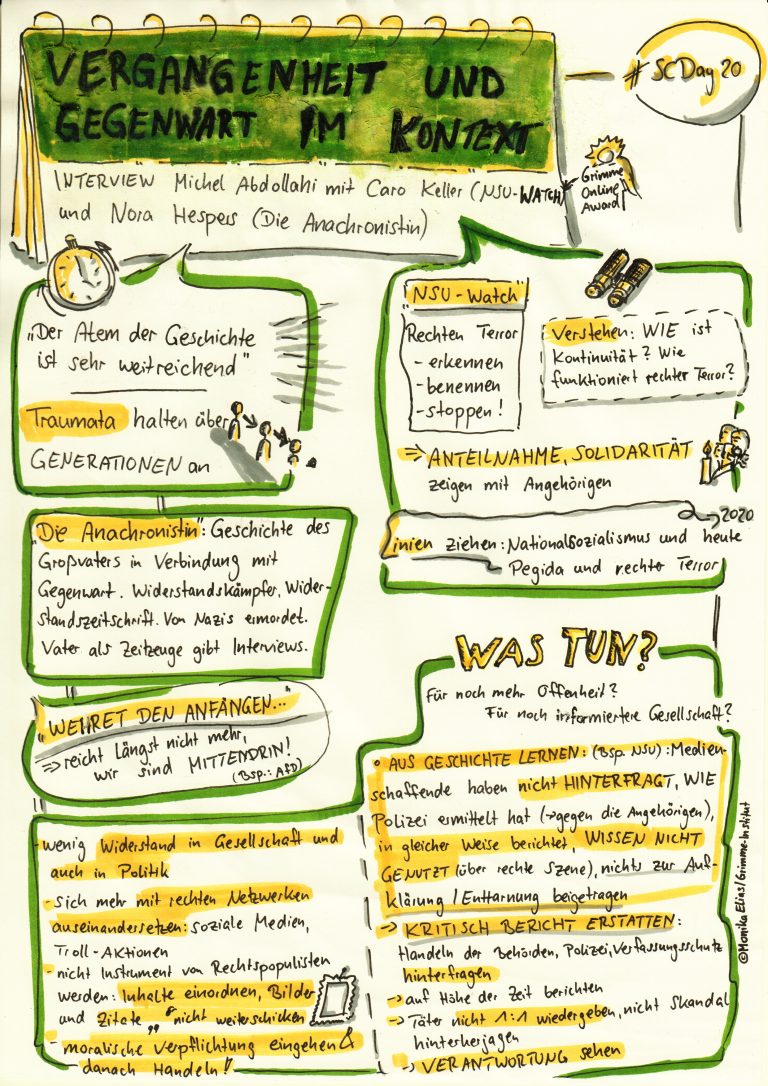 VERGANGENHEIT UND
GEGENWART IM KONTEXT
# SCDay 20
INTERVIEW Michel Abdollahi mit Caro Keller (NSU-WATCH)
und Nora Hespers (Die Anachronistin)
Grimme
Online
Award
„Der Atem der Geschichte
ist sehr weitreichend"
Traumata halten über
GENERATIONEN an
"NSU-Watch"
Rechten Terror
- erkennen
- benennen
- stoppen!
Verstehen: WIE ist
Kontinuität? Wie
funktioniert rechter Terror?
⇒ ANTEILNAHME, SOLIDARITÄT
zeigen mit Angehörigen
→ 2020
Linien ziehen: Nationalsozialismus und heute
Pegida und rechter Terror
„Die Anachronistin": Geschichte des
Großvaters in Verbindung mit
Gegenwart. Widerstandskämpfer, Wider-
standszeitschrift. Von Nazis ermordet.
Vater als Zeitzeuge gibt Interviews.
"WEHRET DEN ANFÄNGEN..."
⇒ reicht längst nicht mehr,
wir sind MITTENDRIN!
(Bsp.: AfD)
- wenig Widerstand in Gesellschaft und
auch in Politik
- sich mehr mit rechten Netzwerken
auseinandersetzen: soziale Medien,
Troll-Aktionen
- nicht Instrument von Rechtspopulisten
werden: Inhalte einordnen, Bilder
und Zitate „ " nicht weiterschicken
- moralische Verpflichtung eingehen &
danach Handeln!
WAS TUN?
Für noch mehr Offenheit?
Für noch informiertere Gesellschaft?
• AUS GESCHICHTE LERNEN: (Bsp. NSU): Medien-
schaffende haben nicht HINTERFRAGT, WIE
Polizei ermittelt hat (→gegen die Angehörigen),
in gleicher Weise berichtet, WISSEN NICHT
GENUTZT (über rechte Szene), nichts zur Auf-
klärung / Enttarnung beigetragen
→ KRITISCH BERICHT ERSTATTEN:
Handeln der Behörden, Polizei, Verfassungsschutz
hinterfragen
→ auf Höhe der Zeit berichten
→ Täter nicht 1:1 wiedergeben, nicht Skandal
hinterherjagen
→ VERANTWORTUNG sehen
©Monika Elias/Grimme-Institut